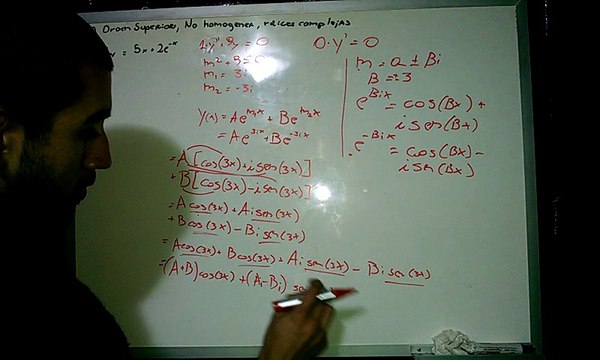 Orden Superior, No homogenea, raices complejas
= 5x + 2e^-x
y'' + 9y = 0
0·y' = 0
m² + 9 = 0
m₁ = 3i
m₂ = -3i
y(x) = Ae^m₁x + Be^m₂x
= Ae^3ix + Be^-3ix
= A[cos(3x) + i sen(3x)]
+ B[cos(3x) - i sen(3x)]
= A cos(3x) + Ai sen(3x)
+ B cos(3x) - Bi sen(3x)
= A cos(3x) + B cos(3x) + Ai sen(3x) - Bi sen(3x)
= (A+B) cos(3x) + (Ai - Bi) se
m = a ± Bi
B = 3
e^Bix = cos(Bx) +
i sen(Bx)
e^-Bix = cos(Bx) -
i sen(Bx)